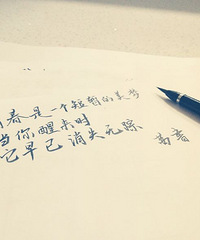 青春是一个短暂的美梦
当你醒来时
它早已消失无踪
高音